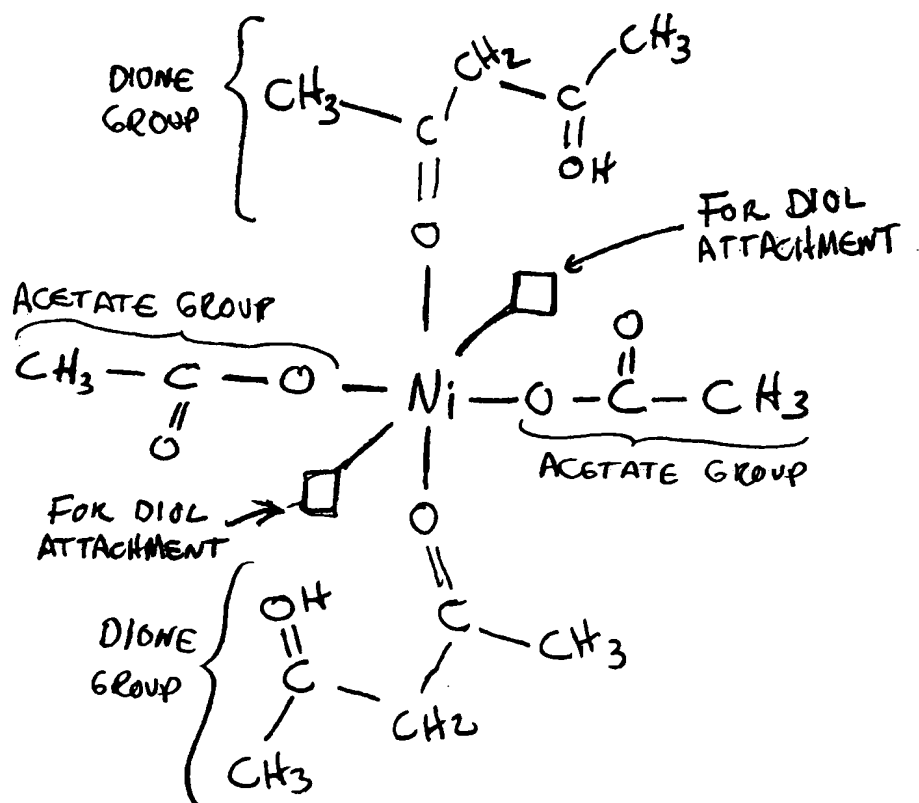 DIONE
GROUP
CH3
C
CH2
C
CH3
OH
O
FOR DIOL
ATTACHMENT
ACETATE GROUP
CH3 — C — O — Ni — O — C — CH3
O
O
ACETATE GROUP
FOR DIOL
ATTACHMENT
O
DIONE
GROUP
OH
C
C
CH3
CH2
CH3